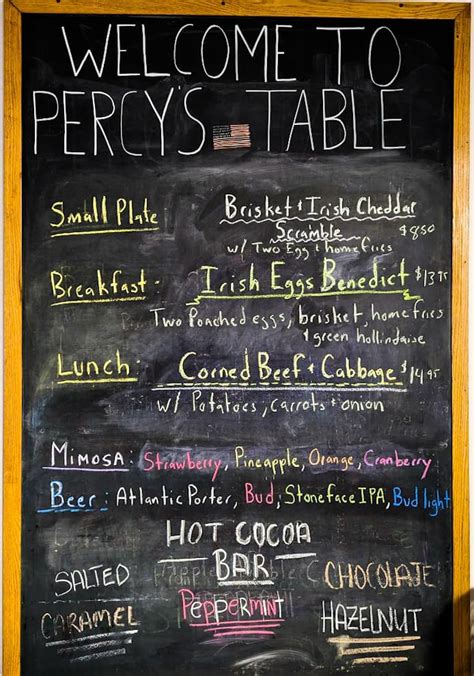 WELCOME TO
PERCY'S TABLE
Small Plate Brisket & Irish Cheddar
Scramble $8.50
w/ Two Egg & homefries
Breakfast: Irish Eggs Benedict $13.95
Two Poached eggs, brisket, home fries
& green hollindaise
Lunch: Corned Beef & Cabbage $14.95
w/ Potatoes, carrots & onion
Mimosa: Strawberry, Pineapple, Orange, Cranberry
Beer: Atlantic Porter, Bud, Stoneface IPA, Bud light
HOT COCOA
BAR
SALTED CHOCOLATE
CARAMEL PEPPERMINT HAZELNUT